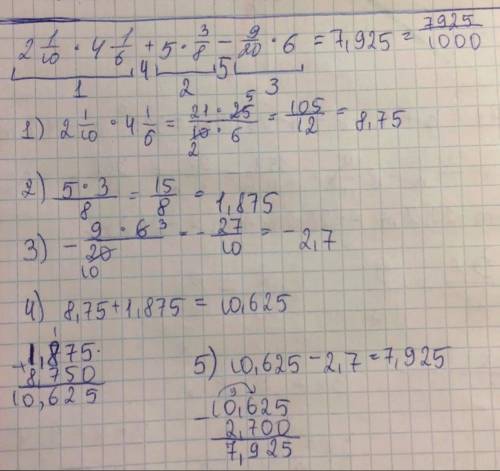 2 1/10 · 4 1/6 + 5 · 3/8 − 9/20 · 6 = 7,925 = 7925/1000
4 5
1 2 3
1) 2 1/10 · 4 1/6 = 21 · 25 5/10 2 · 6 = 105/12 = 8,75
2) 5 · 3/8 = 15/8 = 1,875
3) − 9 · 6 3/20 10 = − 27/10 = − 2,7
4) 8,75 + 1,875 = 10,625
1
1,875
+ 8,750
10,625
5) 10,625 − 2,7 = 7,925
9
− 10,625
2,700
7,925